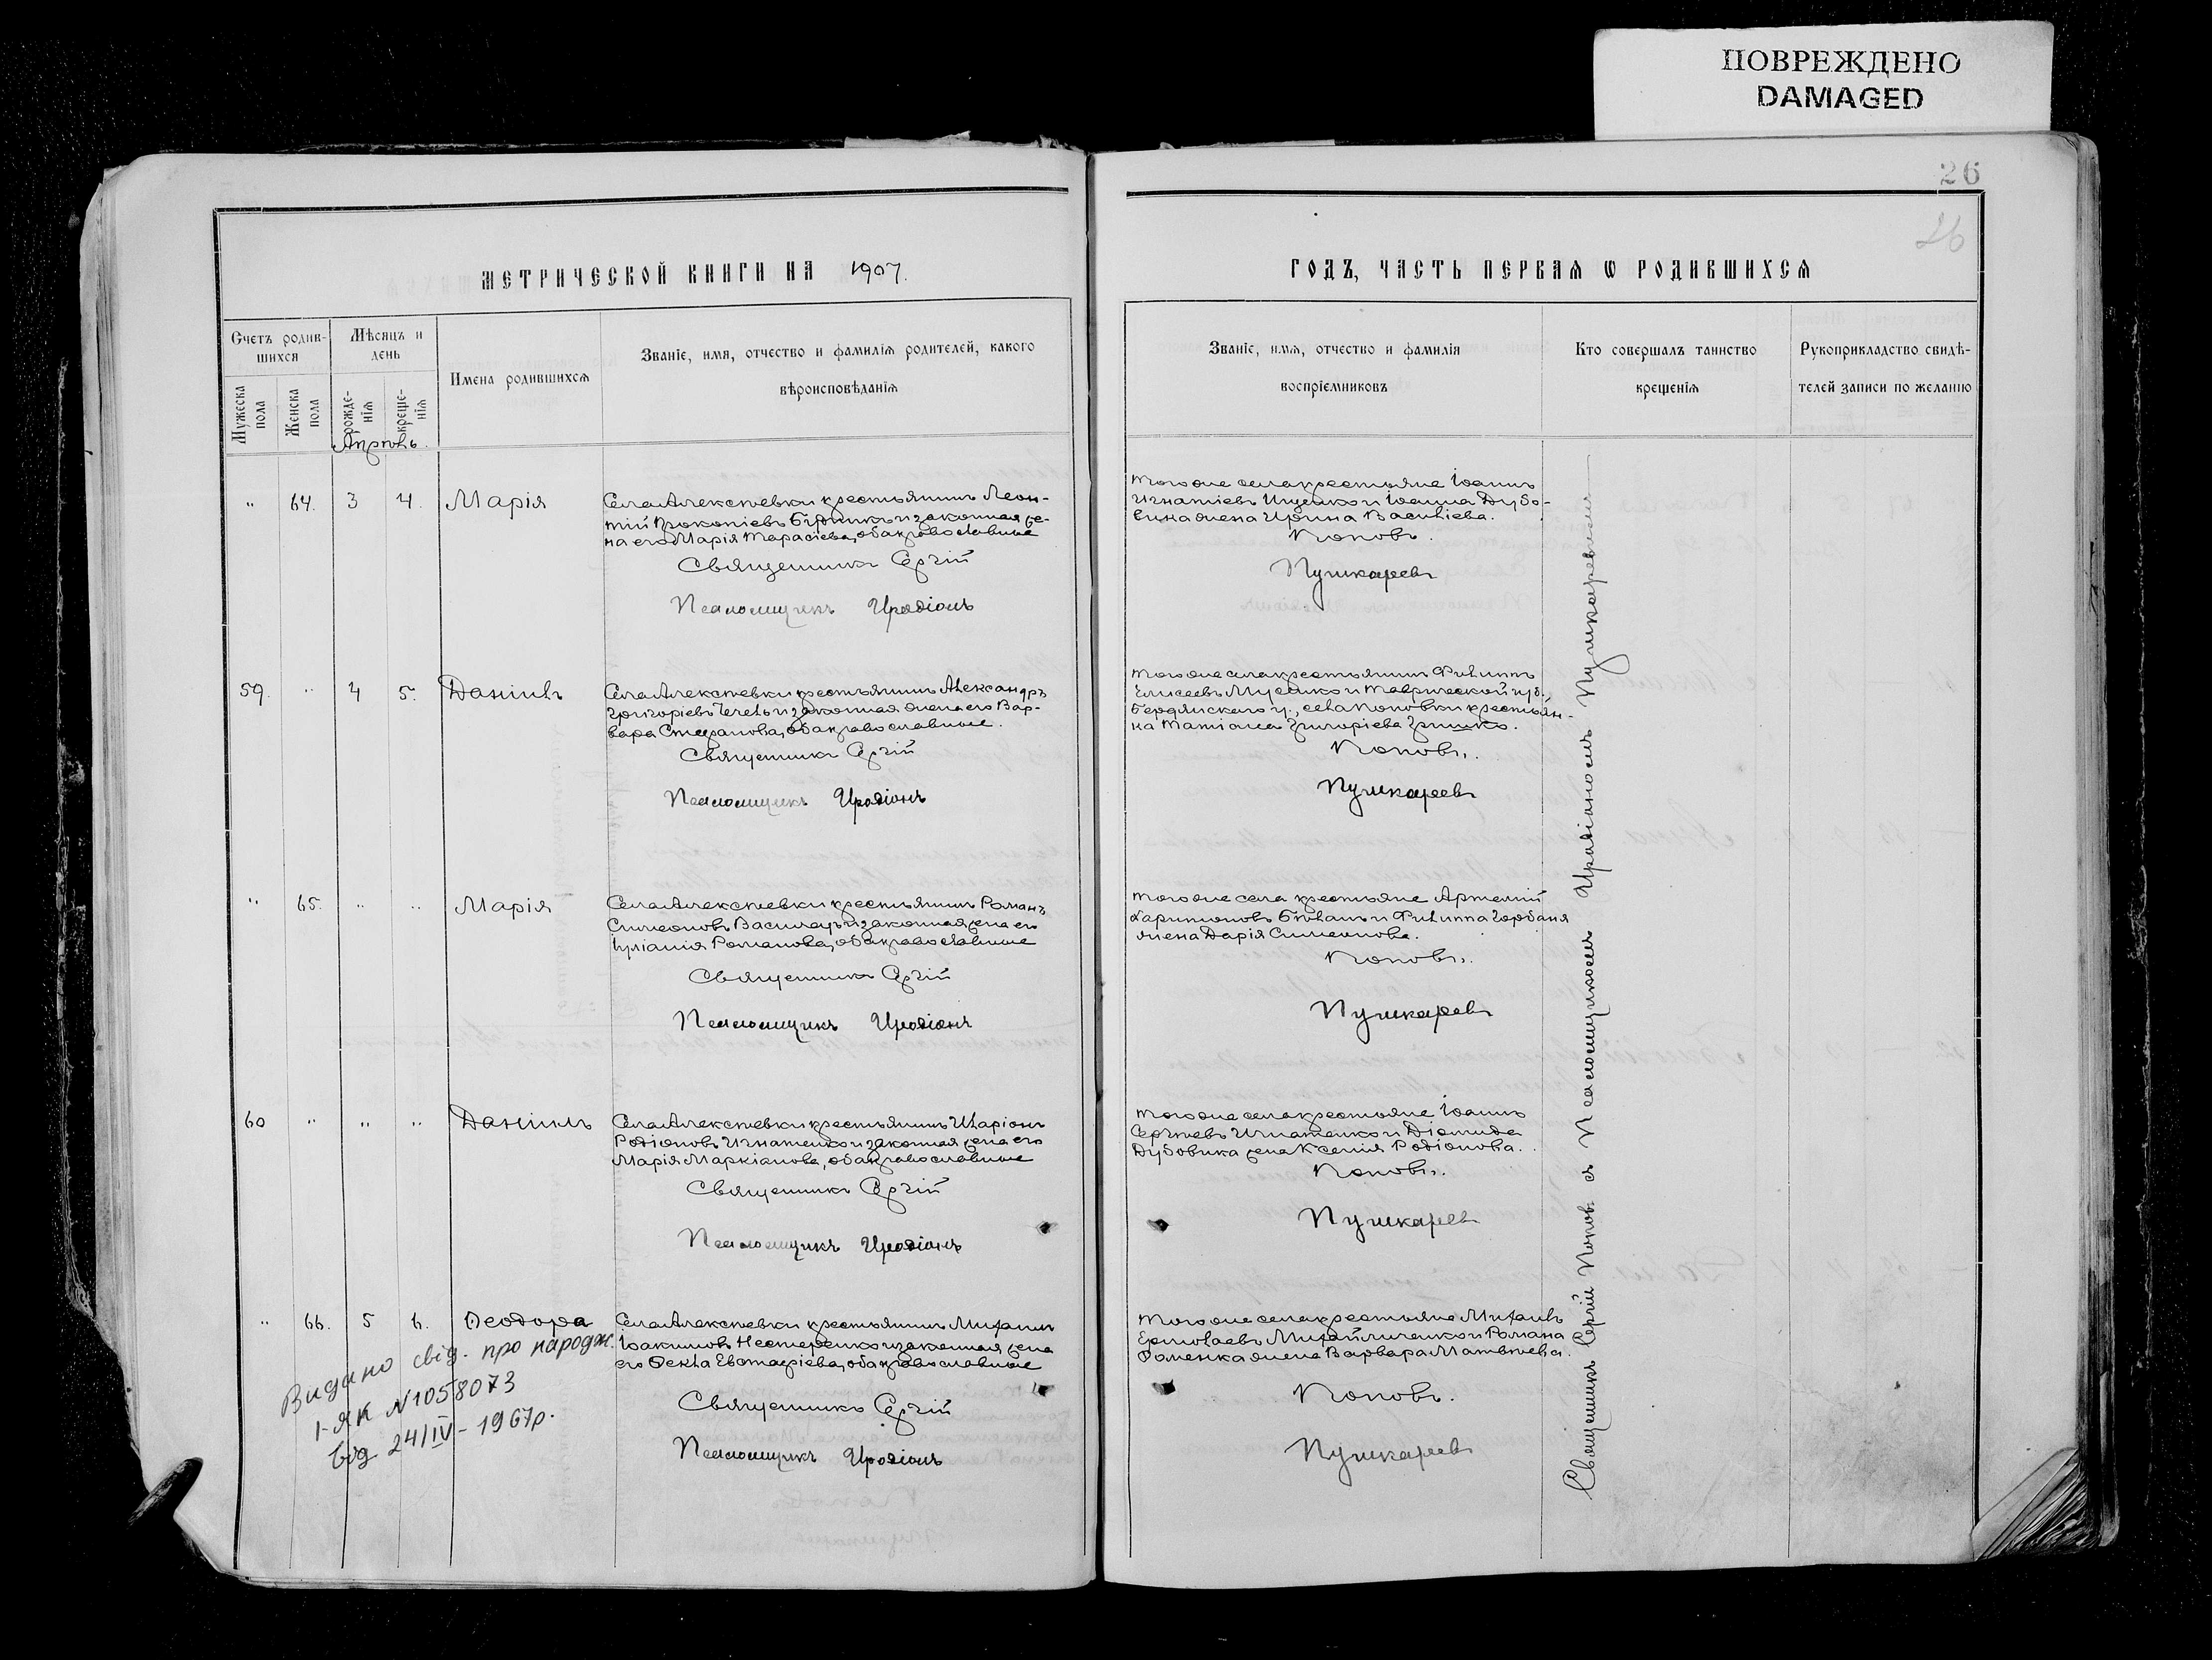 ПОВРЕЖДЕНО
DAMAGED
26
26
МЕТРИЧЕСКОЙ КНИГИ НА 1907.
Счетъ родив-
шихся
Мѣсяцъ и
день
Мужеска
пола
Женска
пола
рожде-
нія
креще-
нія
Имена родившихся
Званіе, имя, отчество и фамилія родителей, какого
вѣроисповѣданія
Апрѣль.
" 64. 3 4. Марія
Села Алексѣевки крестьянинъ Леон-
тій Прокопіевъ и законная же-
на его Марія Тарасіева, оба православные
Священникъ Сергій
Псаломщикъ Иродіонъ
59. " 4 5. Даніилъ
Села Алексѣевки крестьянинъ Александръ
Григоріевъ и законная жена его Вар-
вара Стефанова, оба православные.
Священникъ Сергій
Псаломщикъ Иродіонъ
" 65. " " Марія
Села Алексѣевки крестьянинъ Романъ
Симеоновъ и законная жена его
Іуліанія Романова, оба православные
Священникъ Сергій
Псаломщикъ Иродіонъ
60 " " " Даніилъ
Села Алексѣевки крестьянинъ Иларіонъ
Родіоновъ Игнатенко и законная жена его
Марія Маркіанова, оба православные
Священникъ Сергій
Псаломщикъ Иродіонъ
" 66. 5 6. Ѳеодора
Села Алексѣевки крестьянинъ Михаилъ
Іоакимовъ Нестеренко и законная жена
его Ѳекла Евстафіева, оба православные
Священникъ Сергій
Псаломщикъ Иродіонъ
Видано свід. про народж.
І-ЯК N1058073
від 24/IV-1967р.
ГОДЪ, ЧАСТЬ ПЕРВАЯ Ѡ РОДИВШИХСЯ
Званіе, имя, отчество и фамилія
воспріемниковъ
Кто совершалъ таинство
крещенія
Рукоприкладство свидѣ-
телей записи по желанію
Того же села крестьяне Іоаннъ
Игнатіевъ Ищенко и Іоанна Дубо-
вика жена Ирина Василіева.
Поповъ.
Пушкаревъ
Того же села крестьянинъ Филиппъ
Елисеевъ Мусенко и Таврической губ.,
Бердянскаго у., села Поповки крестьян-
ка Татіана Григоріева Гришко.
Поповъ.
Пушкаревъ
Того же села крестьяне Артемій
Иларіоновъ и Филиппа Горбаня
жена Дарія Симеонова.
Поповъ.
Пушкаревъ
Того же села крестьяне Іоаннъ
Сергѣевъ Игнатенко и Діомида
Дубовика жена Ксенія Родіонова.
Поповъ.
Пушкаревъ
Того же села крестьяне Михаилъ
Ермолаевъ Михайличенко и Романа
Фоменка жена Варвара Матвѣева.
Поповъ.
Пушкаревъ
Священникъ Сергій Поповъ съ Псаломщикомъ Иродіономъ Пушкаревымъ